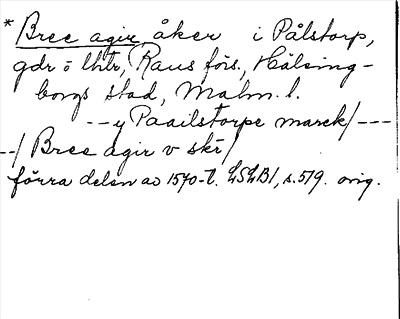 * Bree agir, åker i Pålstorp,
gdr o lhtr, Raus förs., Hälsing-
borgs stad, Malm. l.
--y Paailstorpe marck/---
--/ Bree agir v skr/
förra delen av 1570-t. LSLB1, s.519. orig.